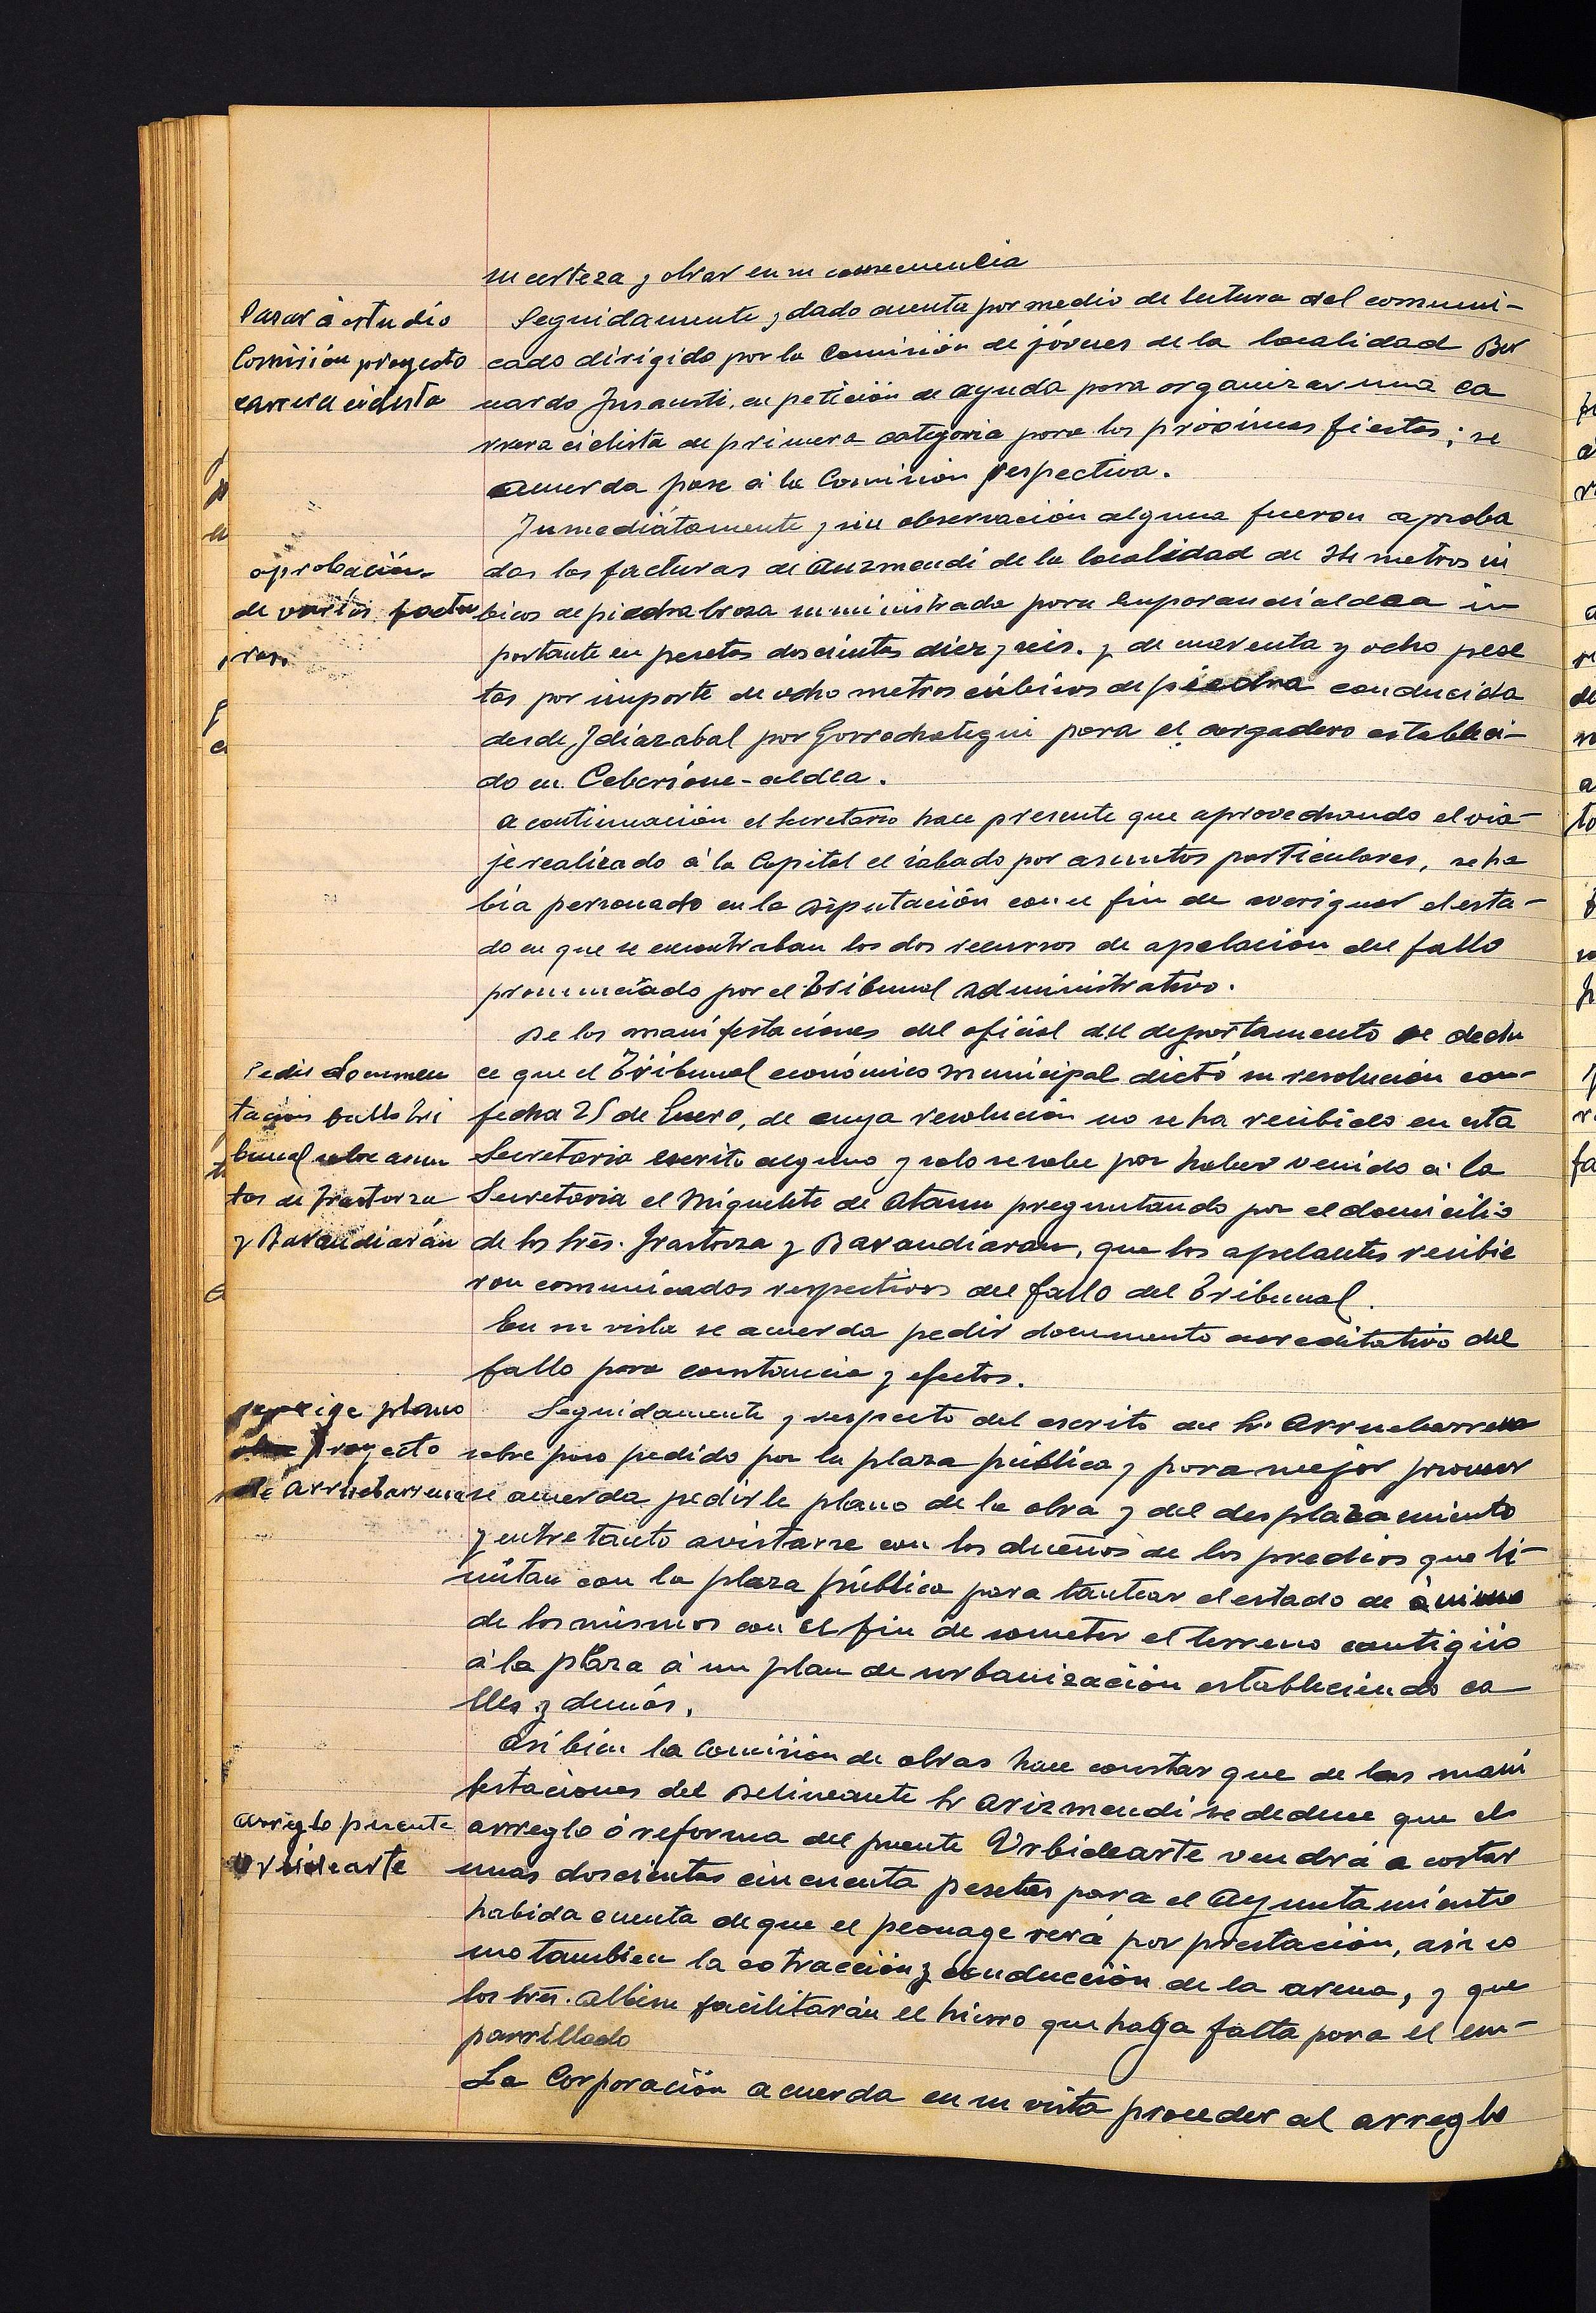 su certeza y obrar en su consecuencia
Pasar á estudio
Comisión proyecto
carrera ciclista
Seguidamente y dado cuenta por medio de lectura del comuni-
cado dirigido por la Comisión de jóvenes de la localidad Ber
nardo Insausti, en petición de ayuda para organizar una ca
rrera ciclista de primera categoria para las próximas fiestas; se
acuerda pase á la Comisión respectiva.
Inmediátamente y sin observación alguna fueron aproba
aprobación
de varias factu
ras
das las facturas de Auzmendi de la localidad de metros cú
bicos de piedra broza suministrada para Emparandialdea im
portante en pesetas doscientas diez y seis. y de cuarenta y ocho pese
tas por importe de ocho metros cúbicos de piedra conducida
desde Idiazabal por Gorrochategui para el cargadero estableci-
do en Ceberione-aldea.
A continuación el Secretario hace presente que aprovechando el via-
je realizado á la Capital el sábado por asuntos particulares, se ha
bia personado en la Diputación con el fin de averiguar el esta-
do en que se encontraban los dos recursos de apelación del fallo
pronunciado por el Tribunal administrativo.
De las manifestaciones del oficial del departamento se dedu
Pedir documen
tación fallo tri
bunal sobre asun
tos de Irastorza
y Barandiarán
ce que el Tribunal económico municipal dictó su resolución con
fecha 25 de Enero, de cuya resolución no se ha recibido en esta
Secretaria escrito alguno y solo se sabe por haber venido á la
Secretaria el Miquelete de Ataun preguntando por el domicilio
de los Sres. Irastorza y Barandiaran, que los apelantes recibie
ron comunicados respectivos del fallo del Tribunal.
En su vista se acuerda pedir documento acreditativo del
fallo para constancia y efectos.
se exige plano
proyecto
de Arruebarrena
Seguidamente y respecto del escrito del Sr. Arruebarrena
sobre paso pedido por la plaza pública y para mejor proveer
se acuerda pedirle plano de la obra y del desplazamiento
y entretanto avistarse con los dueños de los predios que li-
mitan con la plaza pública para tantear el estado de ánimo
de los mismos con el fin de someter el terreno contigüo
á la plaza á un plan de urbanización estableciendo ca
lles y demás.
Asi bien la Comisión de obras hace constar que de las mani
festaciones del Delineante Sr Arizmendi se deduce que el
arreglo puente
Urbidearte
arreglo ó reforma del puente Urbidearte vendrá a costar
unas doscientas cincuenta pesetas para el Ayuntamiento
habida cuenta de que el peonage será por prestación, asi co
mo tambien la estracción y conducción de la arena, y que
los Sres. Albisu facilitarán el hierro que haga falta para el em-
parrillado
La Corporación acuerda en su vista proceder al arreglo